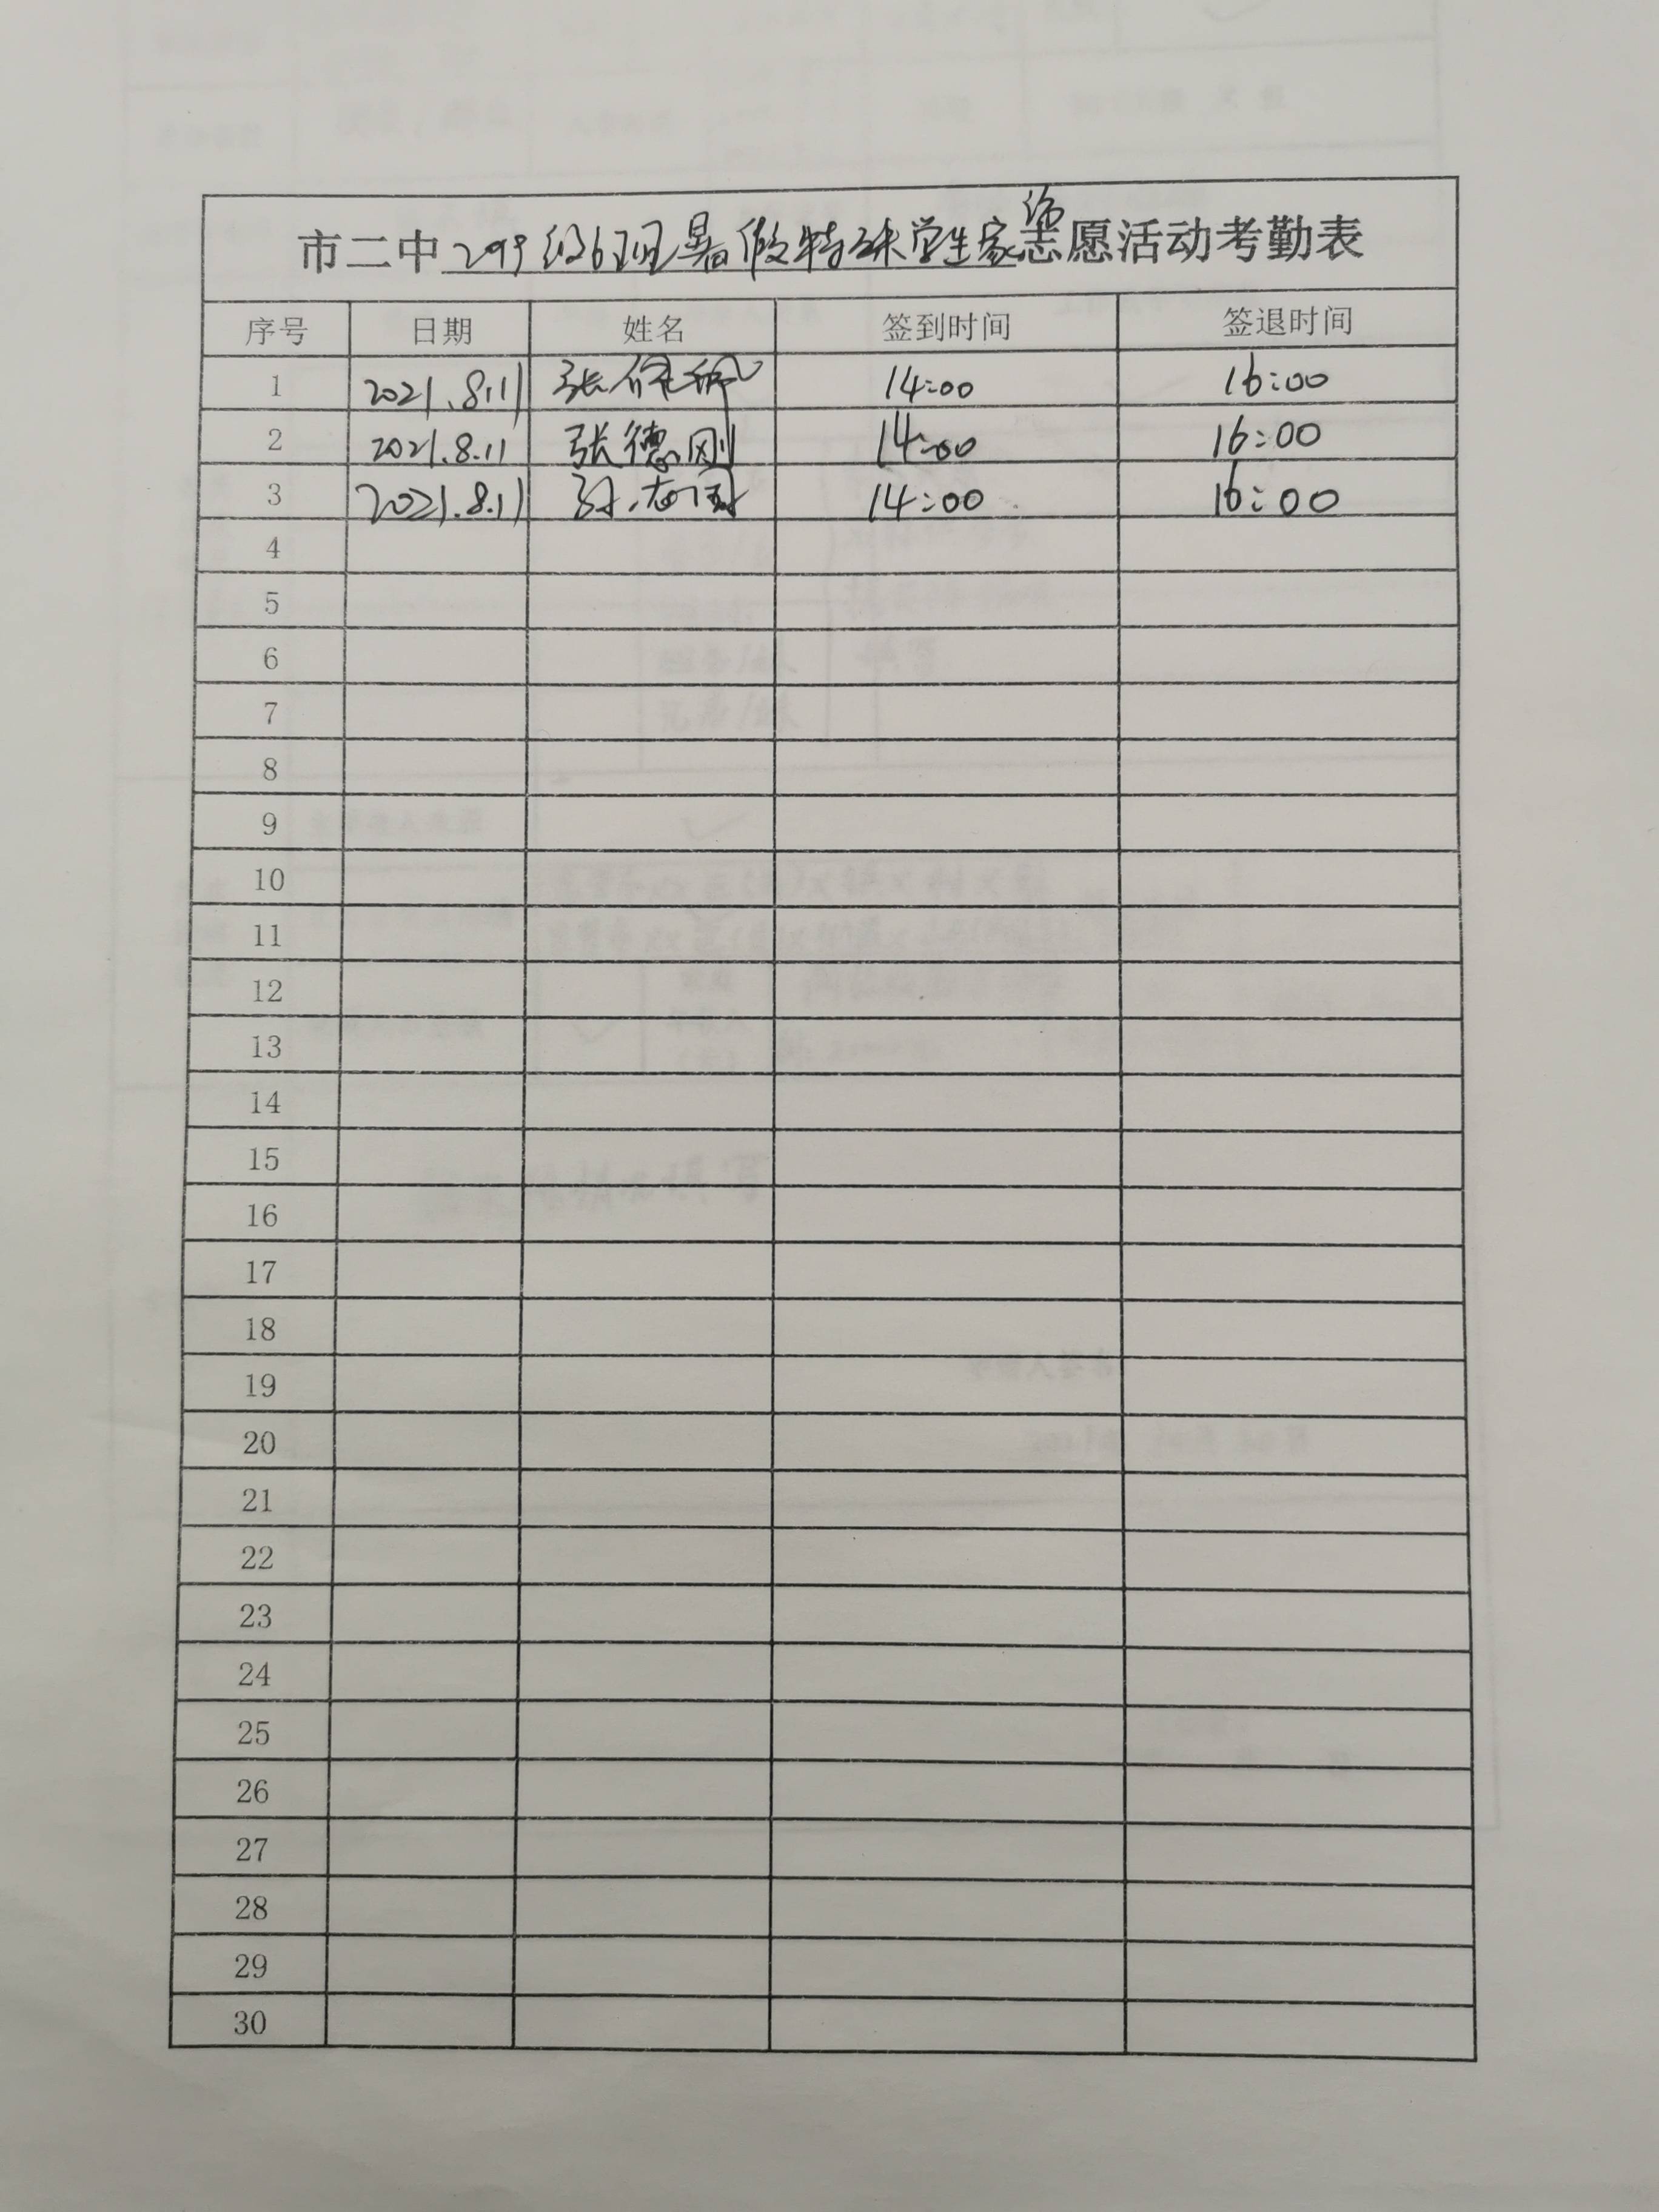 市二中 级6班暑假特殊学生家访志愿活动考勤表
序号 日期 姓名 签到时间 签退时间
1 2021.8.11 张 14:00 16:00
2 2021.8.11 张德刚 14:00 16:00
3 2021.8.11 14:00 16:00
4
5
6
7
8
9
10
11
12
13
14
15
16
17
18
19
20
21
22
23
24
25
26
27
28
29
30